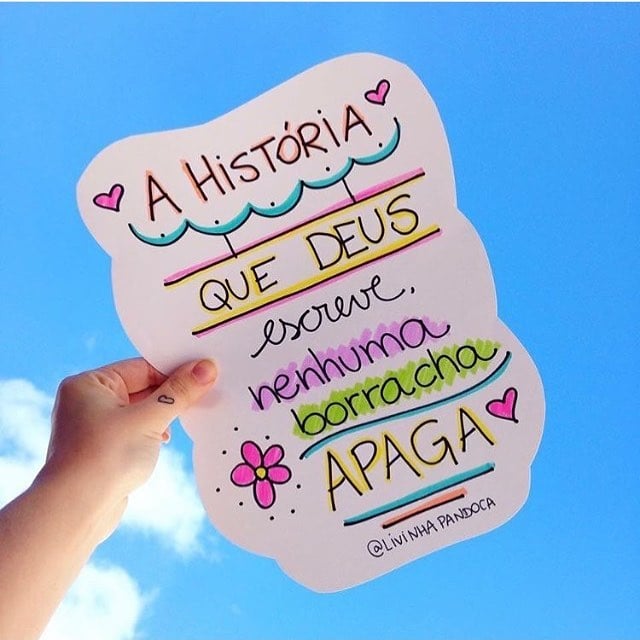 A HiSTÓRiA
QUE DEUS
escreve,
nenhuma
borracha
APAGA
@LiViNHAPANDOCA